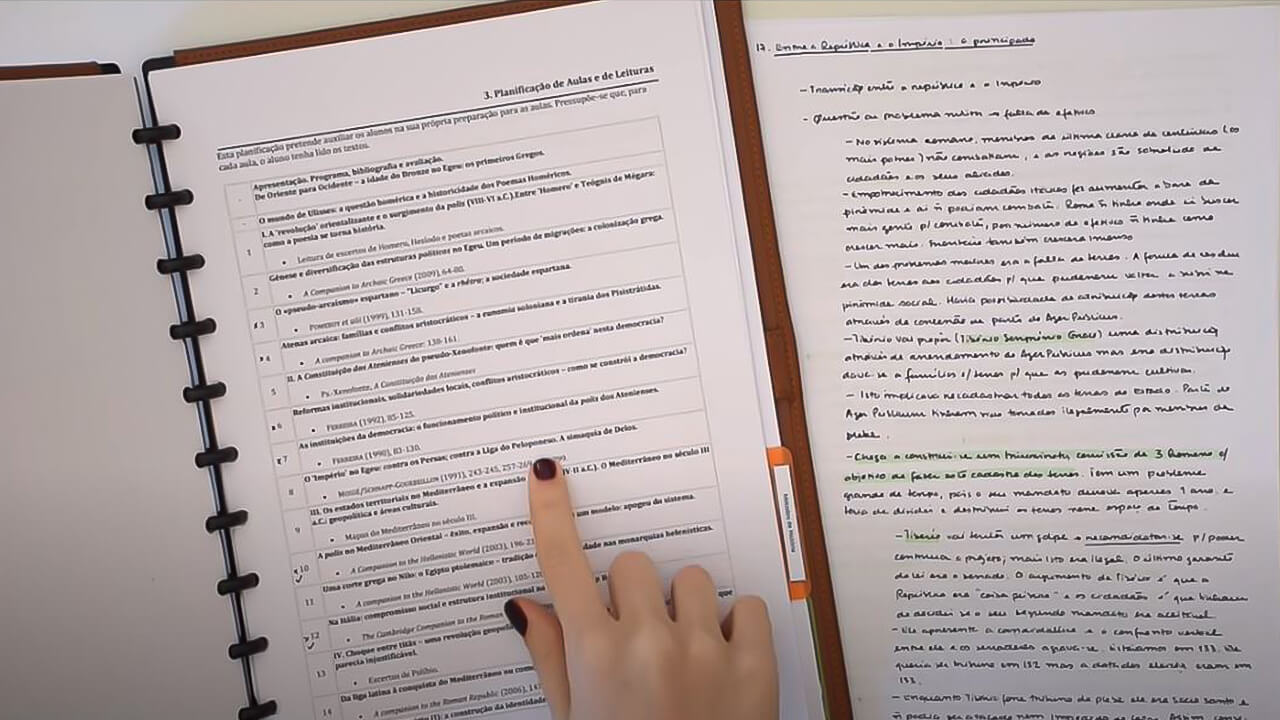 3. Planificação de Aulas e de Leituras
Esta planificação pretende auxiliar os alunos na sua própria preparação para as aulas. Pressupõe-se que, para
cada aula, o aluno tenha lido os textos.
- Apresentação. Programa, bibliografia e avaliação.
De Oriente para Ocidente – a idade do Bronze no Egeu: os primeiros Gregos.
- O mundo de Ulisses: a questão homérica e a historicidade dos Poemas Homéricos.
1 I. A 'revolução' orientalizante e o surgimento da polis (VIII-VI a.C.). Entre 'Homero' e Teógnis de Mégara:
como a poesia se torna história.
• Leitura de excertos de Homero, Hesíodo e poetas arcaicos.
2 Génese e diversificação das estruturas políticas no Egeu. Um período de migrações: a colonização grega.
• A Companion to Archaic Greece (2009), 64-80.
3 O «pseudo-arcaísmo» espartano – "Licurgo" e a rhêtra; a sociedade espartana.
• (1999), 131-158.
4 Atenas arcaica: famílias e conflitos aristocráticos – a eunomia soloniana e a tirania dos Pisistrátidas.
• A companion to Archaic Greece: 138-161.
5 II. A Constituição dos Atenienses do pseudo-Xenofonte: quem é que 'mais ordena' nesta democracia?
• Ps.-Xenofonte, A Constituição dos Atenienses
6 Reformas institucionais, solidariedades locais, conflitos aristocráticos – como se constrói a democracia?
• FERREIRA (1992), 85-125.
7 As instituições da democracia: o funcionamento político e institucional da polis dos Atenienses.
• FERREIRA (1990), 83-130.
8 O 'Império' no Egeu: contra os Persas; contra a Liga do Peloponeso. A simaquia de Delos.
• MOSSÉ/SCHNAPP-GOURBEILLON (1991), 243-245,
9 III. Os estados territoriais no Mediterrâneo e a expansão IV-II a.C.). O Mediterrâneo no século III
a.C.: geopolítica e áreas culturais.
• Mapas do Mediterrâneo no século III.
10 A polis no Mediterrâneo Oriental – êxito, expansão e um modelo: apogeu do sistema.
• A Companion to the Hellenistic World (2003),
11 Uma corte grega no Nilo: o Egipto ptolemaico – tradição nas monarquias helenísticas.
• A companion to the Hellenistic World (2003),
12 Na Itália: compromisso social e estrutura institucional
• The Cambridge Companion to the Roman
13 IV. Choque entre titãs – uma revolução que
parecia injustificável.
• Excertos de Políbio.
14 Da liga latina à conquista do Mediterrâneo ou como
• A companion to the Roman Republic (2006),
a construção da identidade
17. Entre a República e o Império: o principado
- Transição entre a república e o Império
- Questão ou problema militar: falta de efetivos
- No sistema romano, membros da última classe de centúrias (os
mais pobres) não combatiam, e as legiões são sobretudo de
cidadãos e os seus aliados.
- Empobrecimento dos cidadãos itálicos foi aumentar a base da
pirâmide e aí ñ podiam combater. Roma ñ tinha onde ir buscar
mais gente p/ combater, por número de efetivos ñ tinha como
crescer mais. Fronteiras também cresceram imenso
- Um dos problemas maiores era a falta de terras. A forma de
dar terras aos cidadãos p/ que pudessem voltar a subir na
pirâmide social. Havia possibilidade de atribuição destas terras
através de concessão de parte do Ager Publicus.
- Tibério vai propor (Tibério Semprónio Graco) uma distribuição
através de arrendamento do Ager Publicus mas uma distribuição
a famílias s/ terras p/ que as pudessem cultivar.
- Isto implicava recadastrar todas as terras do Estado. Parte do
Ager Publicus tinham sido tomadas ilegalmente por membros da
plebe.
- Chega a construir-se um triunvirato, comissão de 3 Romanos c/
objetivo de fazer este cadastro das terras. Tem um problema
grande de tempo, pois o seu mandato durava apenas 1 ano, e
teria de dividir e distribuir as terras nesse espaço de tempo.
- Tibério vai tentar um golpe e recandidatar-se p/ poder
continuar o projeto, mas isto era ilegal. O último garante
da lei era o senado. O argumento de Tibério é que a
República era "coisa pública" e os cidadãos é que tinham
de decidir se o seu segundo mandato era aceitável.
- Ele apresenta a candidatura e o confronto verbal
entre ele e os senadores agrava-se. Estávamos em 133. Ele
queria ser tribuno em 132 mas a data das eleições eram em
133.
- Enquanto Tibério fosse tribuno da plebe ele era sacrosanto e
ñ podia ser atacado